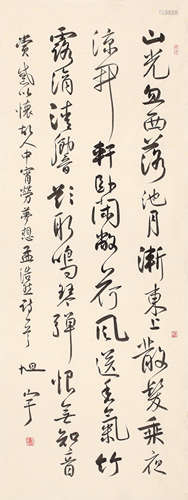 山光忽西落池月漸東上散髮乘夜
涼開軒卧閑敞荷風送香氣竹
露滴清響欲取鳴琴彈恨無知音
賞感此懷故人中宵勞夢想孟浩然詩 旭宇